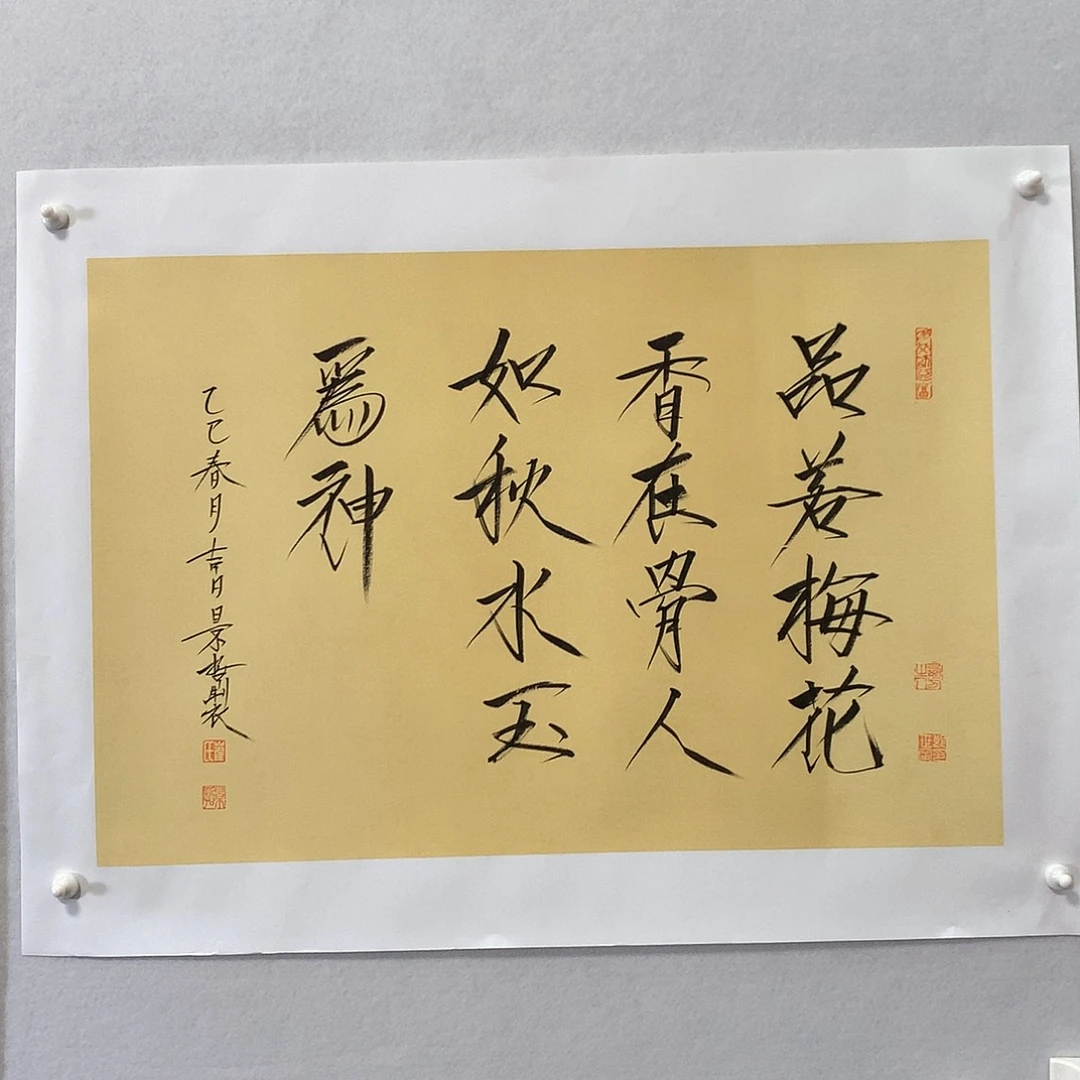 品若梅花
香在骨人
如秋水玉
爲神
乙巳春月吉日景梅製